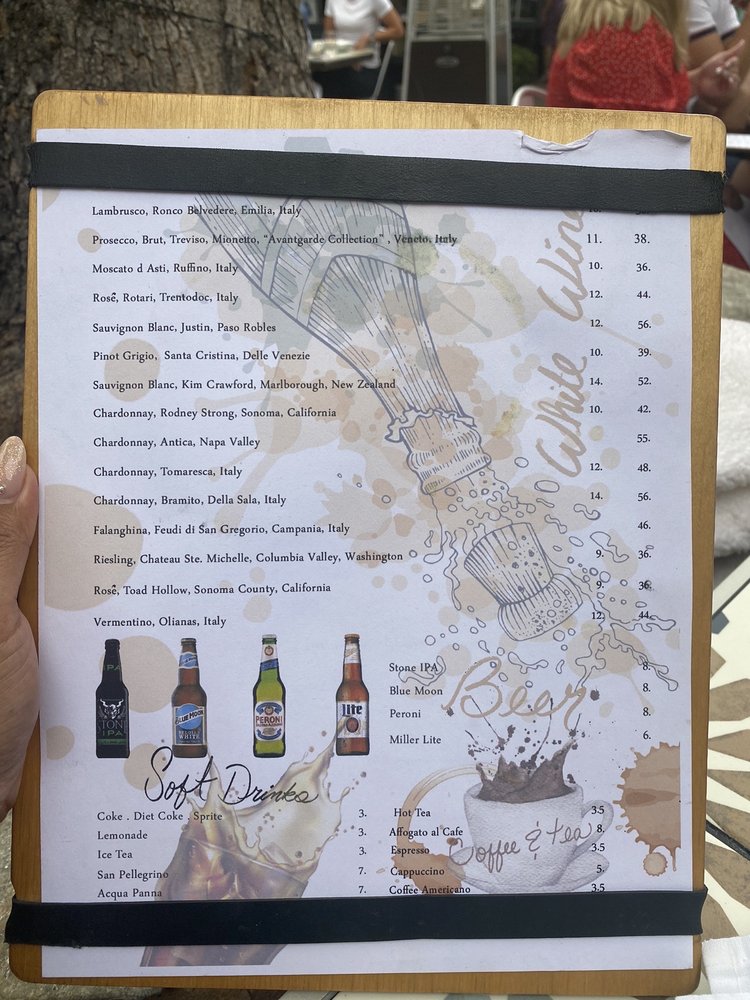 White Wine
Lambrusco, Ronco Belvedere, Emilia, Italy
Prosecco, Brut, Treviso, Mionetto, "Avantgarde Collection" , Veneto, Italy 11. 38.
Moscato d Asti, Ruffino, Italy 10. 36.
Rosé, Rotari, Trentodoc, Italy 12. 44.
Sauvignon Blanc, Justin, Paso Robles 12. 56.
Pinot Grigio, Santa Cristina, Delle Venezie 10. 39.
Sauvignon Blanc, Kim Crawford, Marlborough, New Zealand 14. 52.
Chardonnay, Rodney Strong, Sonoma, California 10. 42.
Chardonnay, Antica, Napa Valley 55.
Chardonnay, Tomaresca, Italy 12. 48.
Chardonnay, Bramito, Della Sala, Italy 14. 56.
Falanghina, Feudi di San Gregorio, Campania, Italy 46.
Riesling, Chateau Ste. Michelle, Columbia Valley, Washington 9. 36.
Rosê, Toad Hollow, Sonoma County, California 9. 36.
Vermentino, Olianas, Italy 12. 44.
IPA
STONE
IPA
BLUE MOON
BELGIAN
WHITE
PERONI
Lite
Beer
Stone IPA 8.
Blue Moon 8.
Peroni 8.
Miller Lite 6.
Soft Drinks
Coke . Diet Coke . Sprite 3.
Lemonade 3.
Ice Tea 3.
San Pellegrino 7.
Acqua Panna 7.
Coffee & tea
Hot Tea 3.5
Affogato al Cafe 8.
Espresso 3.5
Cappuccino 5.
Coffee Americano 3.5